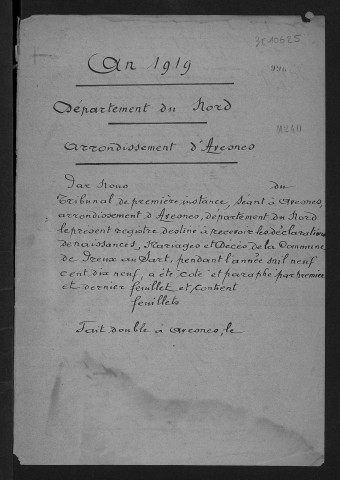 An 1919
Département du Nord
Arrondissement d'Avesnes
Par Nous du
Tribunal de première instance, séant à Avesnes,
arrondissement d'Avesnes, département du Nord
le présent registre destiné à recevoir les déclarations
de naissances, Mariages et Décès de la Commune
de Preux au Sart, pendant l'année mil neuf
cent dix neuf, a été coté et paraphé par premier
et dernier feuillet et contient
feuillets
Fait double à Avesnes, le